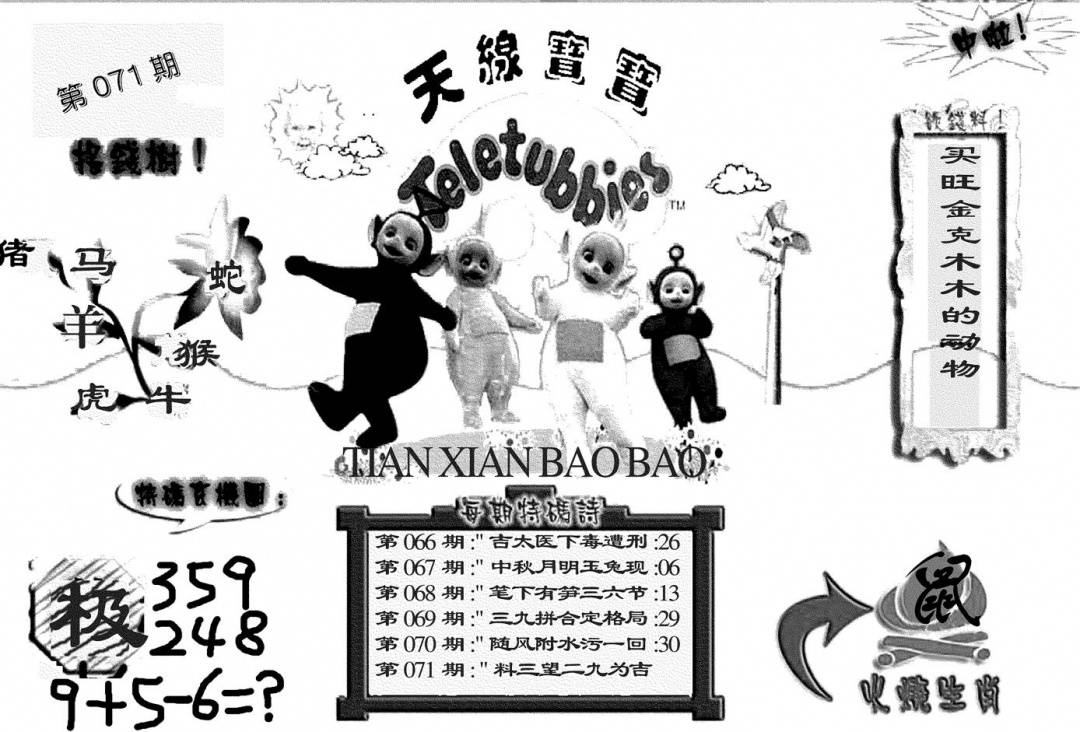 第071期
天線寶寶
中啦！
搖錢樹！
Teletubbies
TM
猪
马
羊
蛇
猴
虎
牛
买旺金克木木的动物
TIAN XIAN BAO BAO
特碼玄機圖：
每期特碼詩
第066期:"吉太医下毒遭刑:26
第067期:"中秋月明玉兔现:06
第068期:"笔下有笋三六节:13
第069期:"三九拼合定格局:29
第070期:"随风附水污一回:30
第071期:"料三望二九为吉
极
359
248
9+5-6=?
鼠
火燒生肖